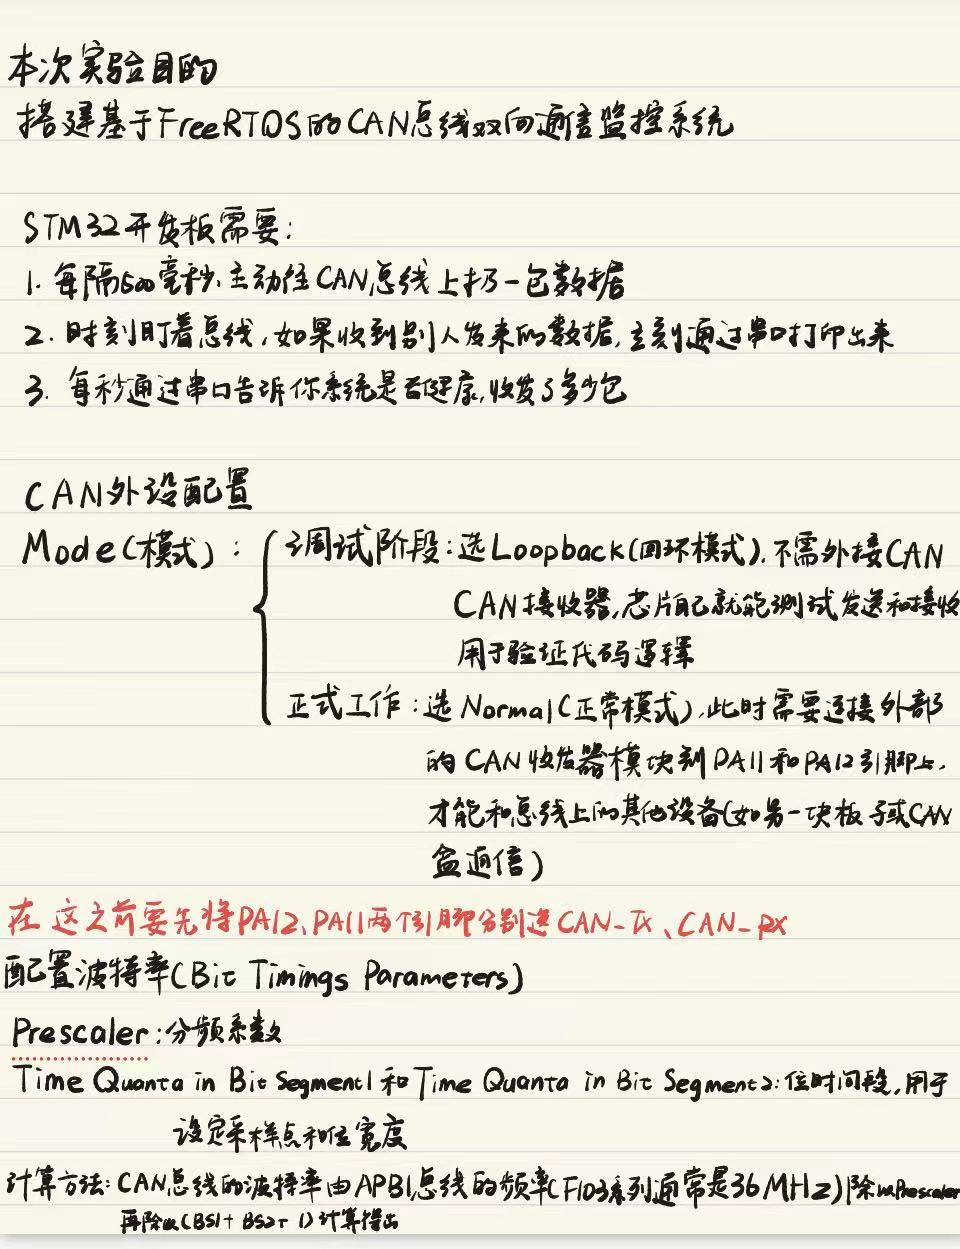 本次实验目的
搭建基于FreeRTOS的CAN总线双向通信监控系统
STM32开发板需要:
1. 每隔500毫秒,主动往CAN总线上扔一包数据
2. 时刻盯着总线,如果收到别人发来的数据,立刻通过串口打印出来
3. 每秒通过串口告诉你系统是否健康,收发了多少包
CAN外设配置
Mode(模式): 调试阶段:选Loopback(回环模式),不需外接CAN
CAN接收器,芯片自己就能测试发送和接收
用于验证代码逻辑
正式工作:选Normal(正常模式),此时需要连接外部
的CAN收发器模块到PA11和PA12引脚上,
才能和总线上的其他设备(如另一块板子或CAN
盒通信)
在这之前要先将PA12、PA11两个引脚分别选CAN-TX、CAN-RX
配置波特率(Bit Timings Parameters)
Prescaler:分频系数
Time Quanta in Bit Segment1和Time Quanta in Bit Segment2:位时间段,用于
设定采样点和位宽度
计算方法:CAN总线的波特率由APB1总线的频率(F103系列通常是36MHz)除以Prescaler
再除以(BS1+BS2+1)计算得出